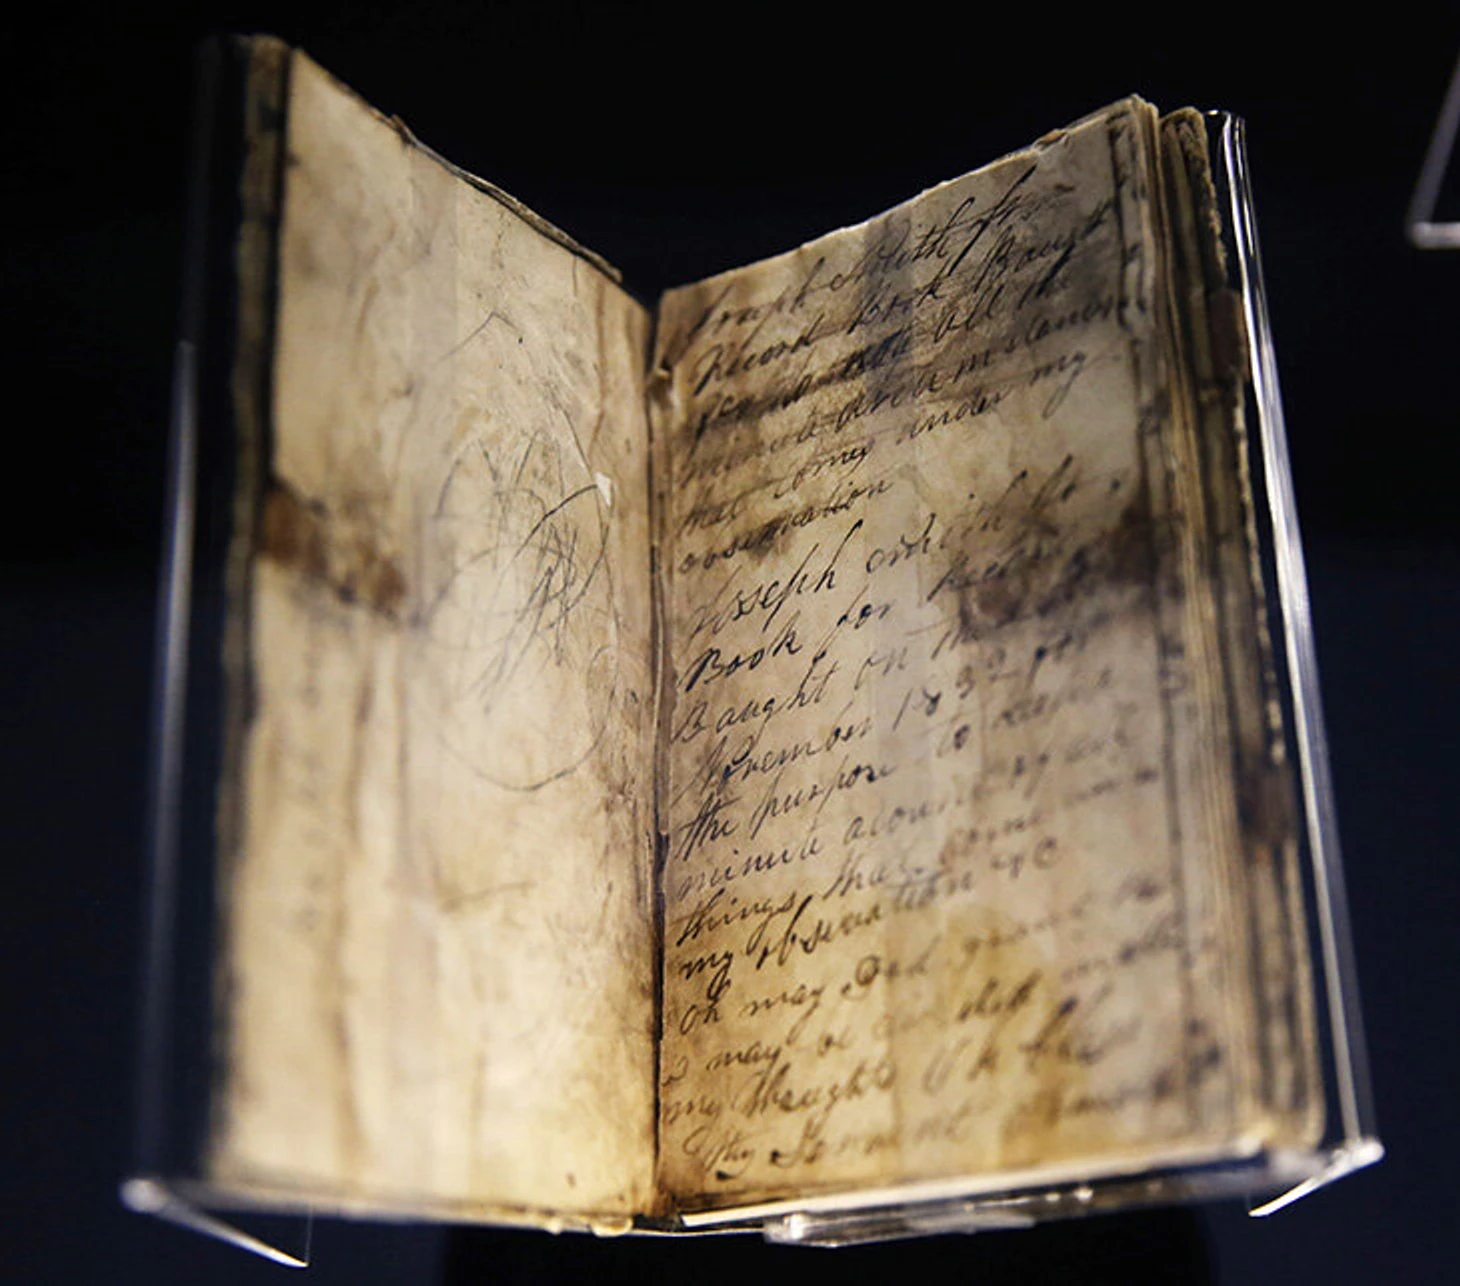 Joseph Smith Jrs
Record Book Baught
for to note all the
minute circumstances
that comes under my
observation
Joseph Smith Jrs
Book for Record
Baught on the
November 1832 for
the purpose to keep a
minute acount of all
things that come
my obseravation &c
Oh may God grant
I may be
my thaughts Oh
thy Servent